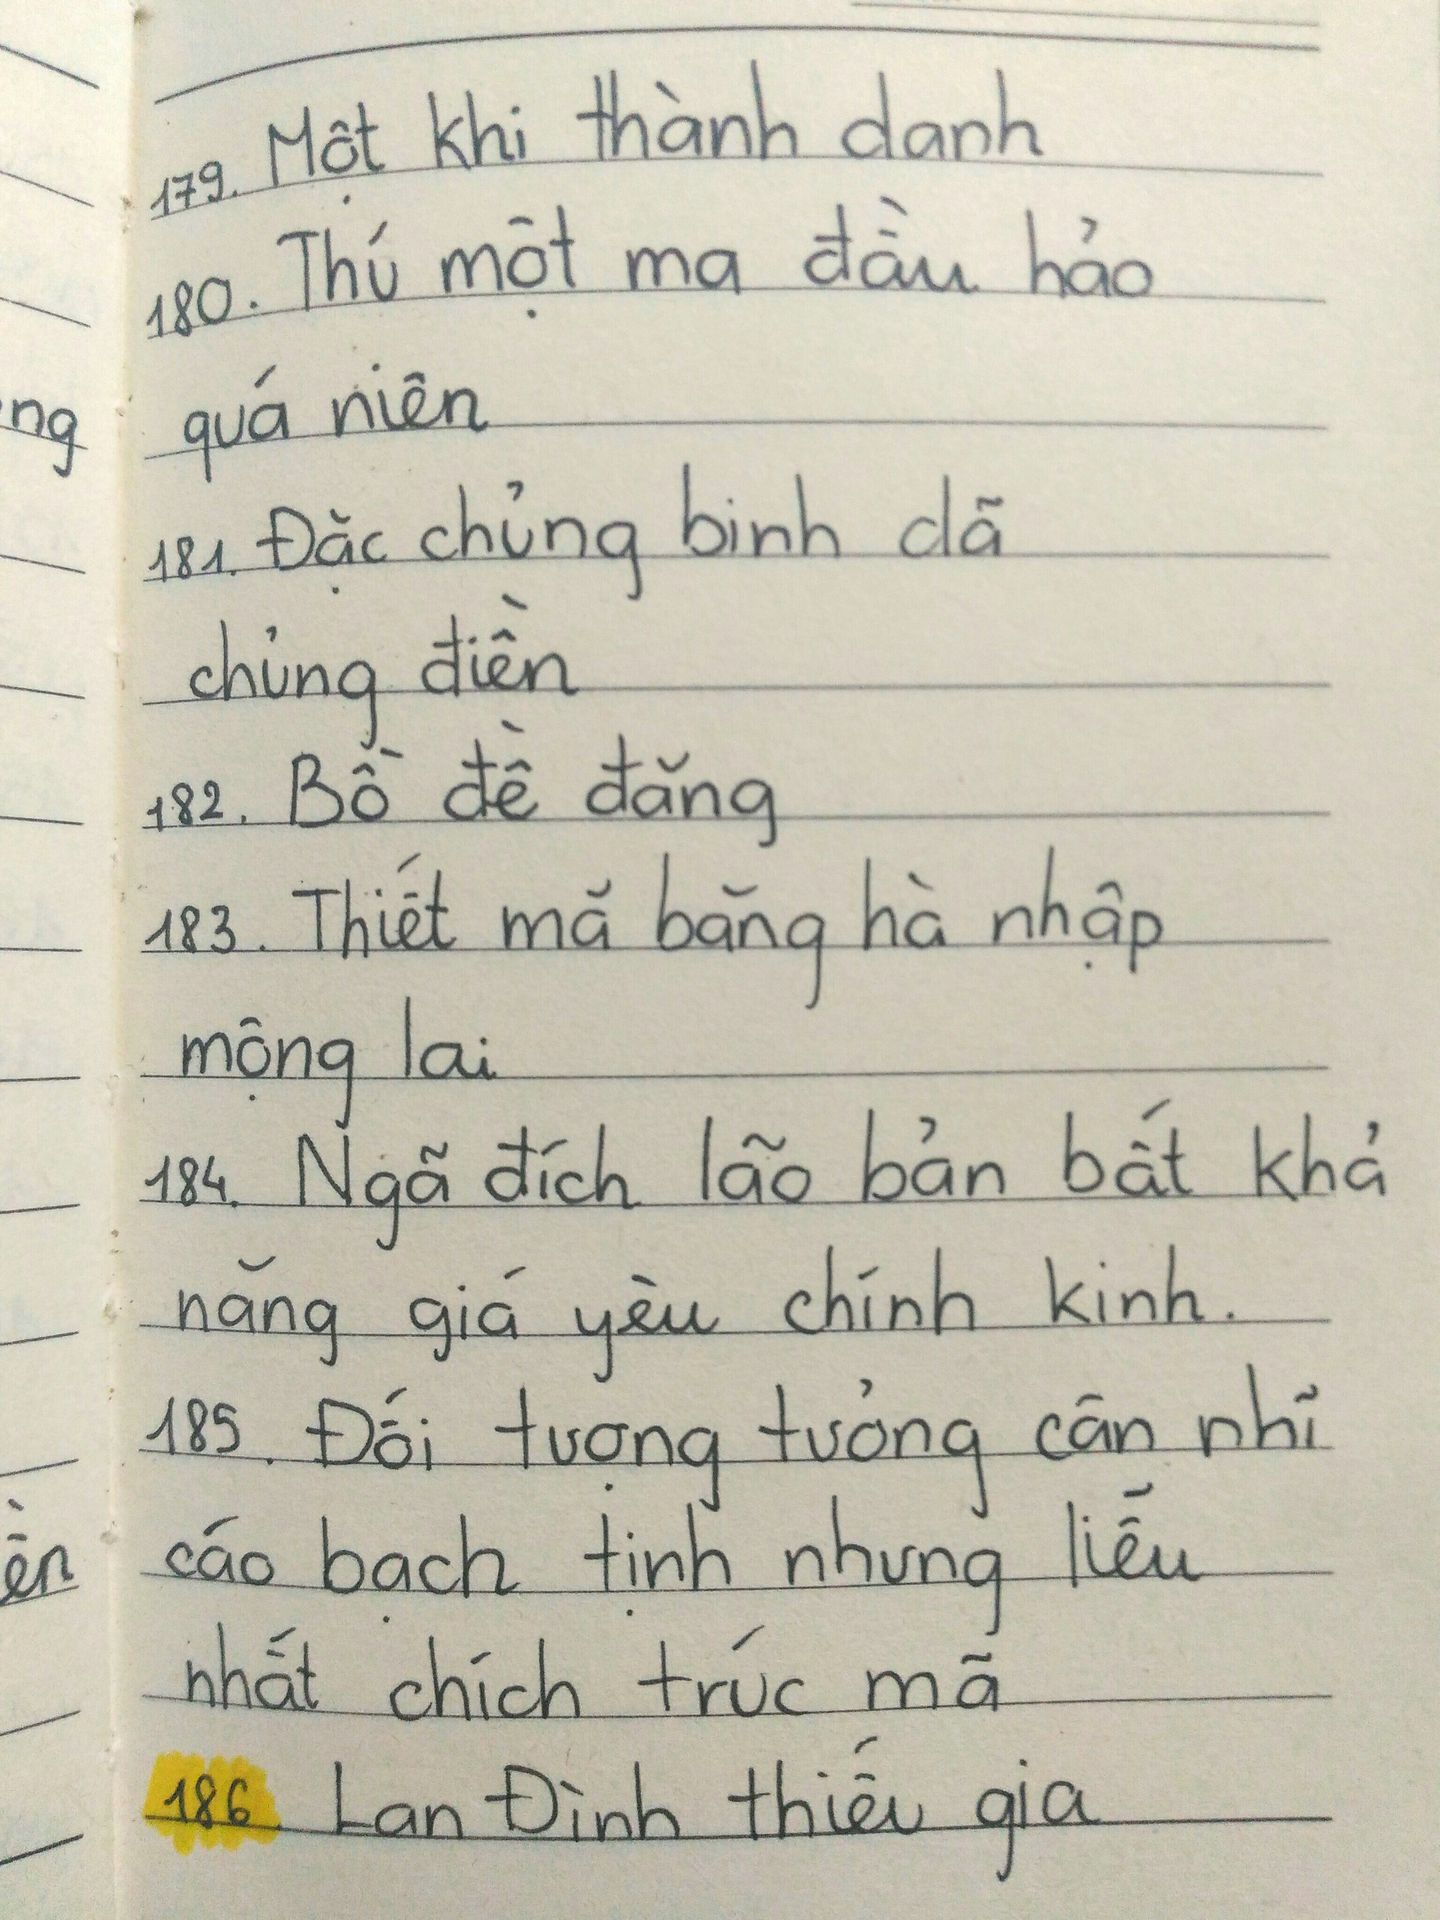 179. Một khi thành danh
180. Thú một ma đầu hảo
quá niên
ng
181. Đặc chủng binh dã
chủng điền
182. Bồ đề đăng
183. Thiết mã băng hà nhập
mộng lai
184. Ngã đích lão bản bất khả
năng giá yèu chính kinh.
185. Đối tượng tưởng cân nhĩ
cáo bạch tịnh nhưng liễu
ên
nhất chích trúc mã
186 Lan Đình thiếu gia